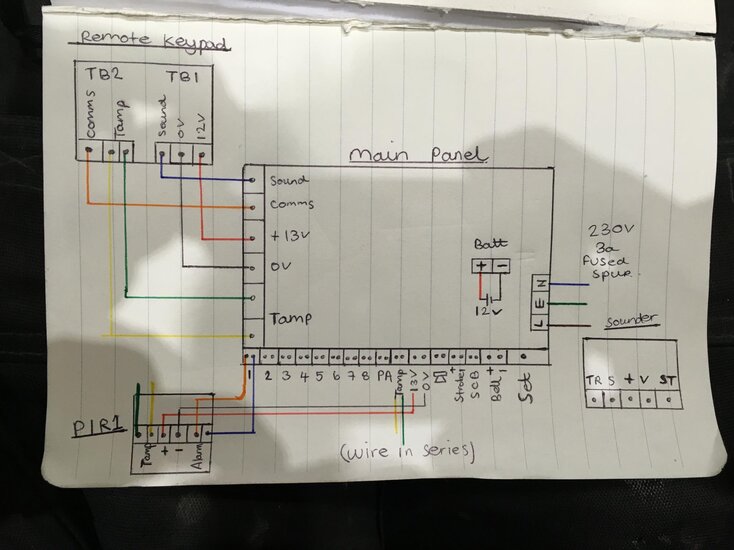 Remote Keypad
TB2 TB1
Comms Tamp Sound 0V 12V
Main Panel
Sound
Comms
+ 13V
0V
Tamp
Batt
+ -
12V
N
E
L
230V
3a
fused
spur
Sounder
TR S + V ST
1 2 3 4 5 6 7 8 PA Tamp 13V 0V + Strobe - SCB Bell + - Set
PIR1
Tamp + - Alarm
(Wire in series)